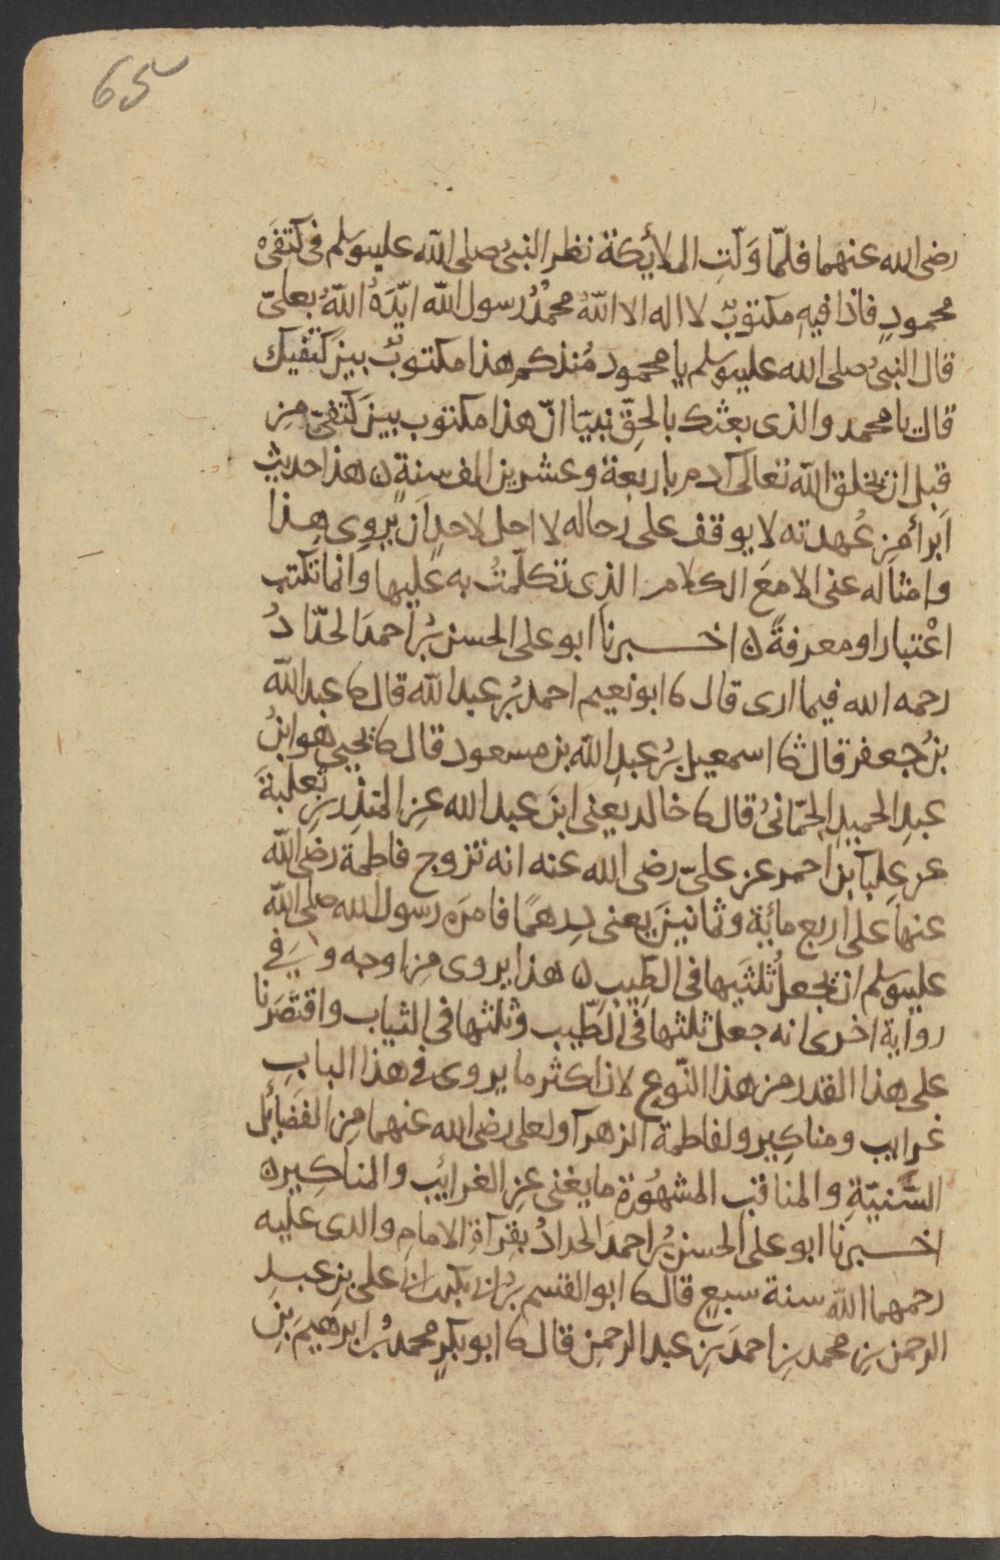 65
رضى الله عنهما فلمّا وَلّتِ الملايكة نظر النبىُ صلى الله عليه وسلم فى كتفَىْ
محمودٍ فاذا فيهِ مكتوبٌ لا اله الا اللّهُ محمدٌ رسول اللّه ايّدَهُ اللّهُ بعلىّ
قال النبىُ صلى الله عليه وسلم يا محمود مُنذ كم هذا مكتوبٌ بين كتفَيك
قال يا محمد والذى بعثك بالحقِّ نبيّا انّ هذا مكتوب بينَ كتفىّ مِن
قبل ان يخلق اللّه تعالى آدم باربعة وعشرين الف سنةٍ ۵ هذا حديث
ابرأ مِن عُهدته لا يوقف على رجاله لا احل لاحدٍ ان يروى هذا
وامثاله عنى الا معَ الكلام الذى تكلّمتُ به عَليها وانما تكتب
اعْتبارا ومعرفةً ۵ اخبرنا ابو على الحسن بنُ احمدَ الحدّادُ
رحمه الله فيما ارى قال ثا ابو نعيم احمد بنُ عبد اللّه قال ثا عبد اللّه
بنُ جعفر قال ثا اسمعيل بنُ عبدِ اللّه بن مسعود قال ثا يحيى هو ابنُ
عبدِ الحميدِ الحمّانىُ قال ثا خالد يعنى ابنَ عبد الله عنِ المنذِر بنِ ثعلبةَ
عن عِلبآ بن احمر عن علىّ رضى الله عنه انه تزوج فاطمة رضى اللّه
عنها على اربع مائِةٍ وثمانينَ يعنى درهمًا فامرَه رسول الله صلى اللّه
عليه وسلم ان يجعلَ ثلثَيها فى الطِيب ۵ هذا يروى من اوجه و فِى
رواية اخرى انه جعل ثلثها فى الطّيب وثلثها فى الثياب واقتَصَرنا
على هذا القدر من هذا النّوع لان اكثر ما يروى فى هذا البابِ
غرايب ومناكِير ولفاطمة الزهرآ ولعلى رضى الله عنهما مِن الفضَايل
السَّنيّةِ والمناقب المشهُورة ما يغنى عنِ الغرايب والمناكِير ۵
اخبرنا ابو على الحسن بنُ احمدَ الحدادُ بقرآةِ الامامِ والدى عليه
رحمهما اللّه سنة سبعٍ قال ثا ابو القسم بنُ ابى بكر بن ابى على بنِ عبدِ
الرحمن بنِ محمد بنِ احمدَ بنِ عبد الرحمنِ قال ثا ابو بكرٍ محمد بنُ ابرهيمَ بنِ